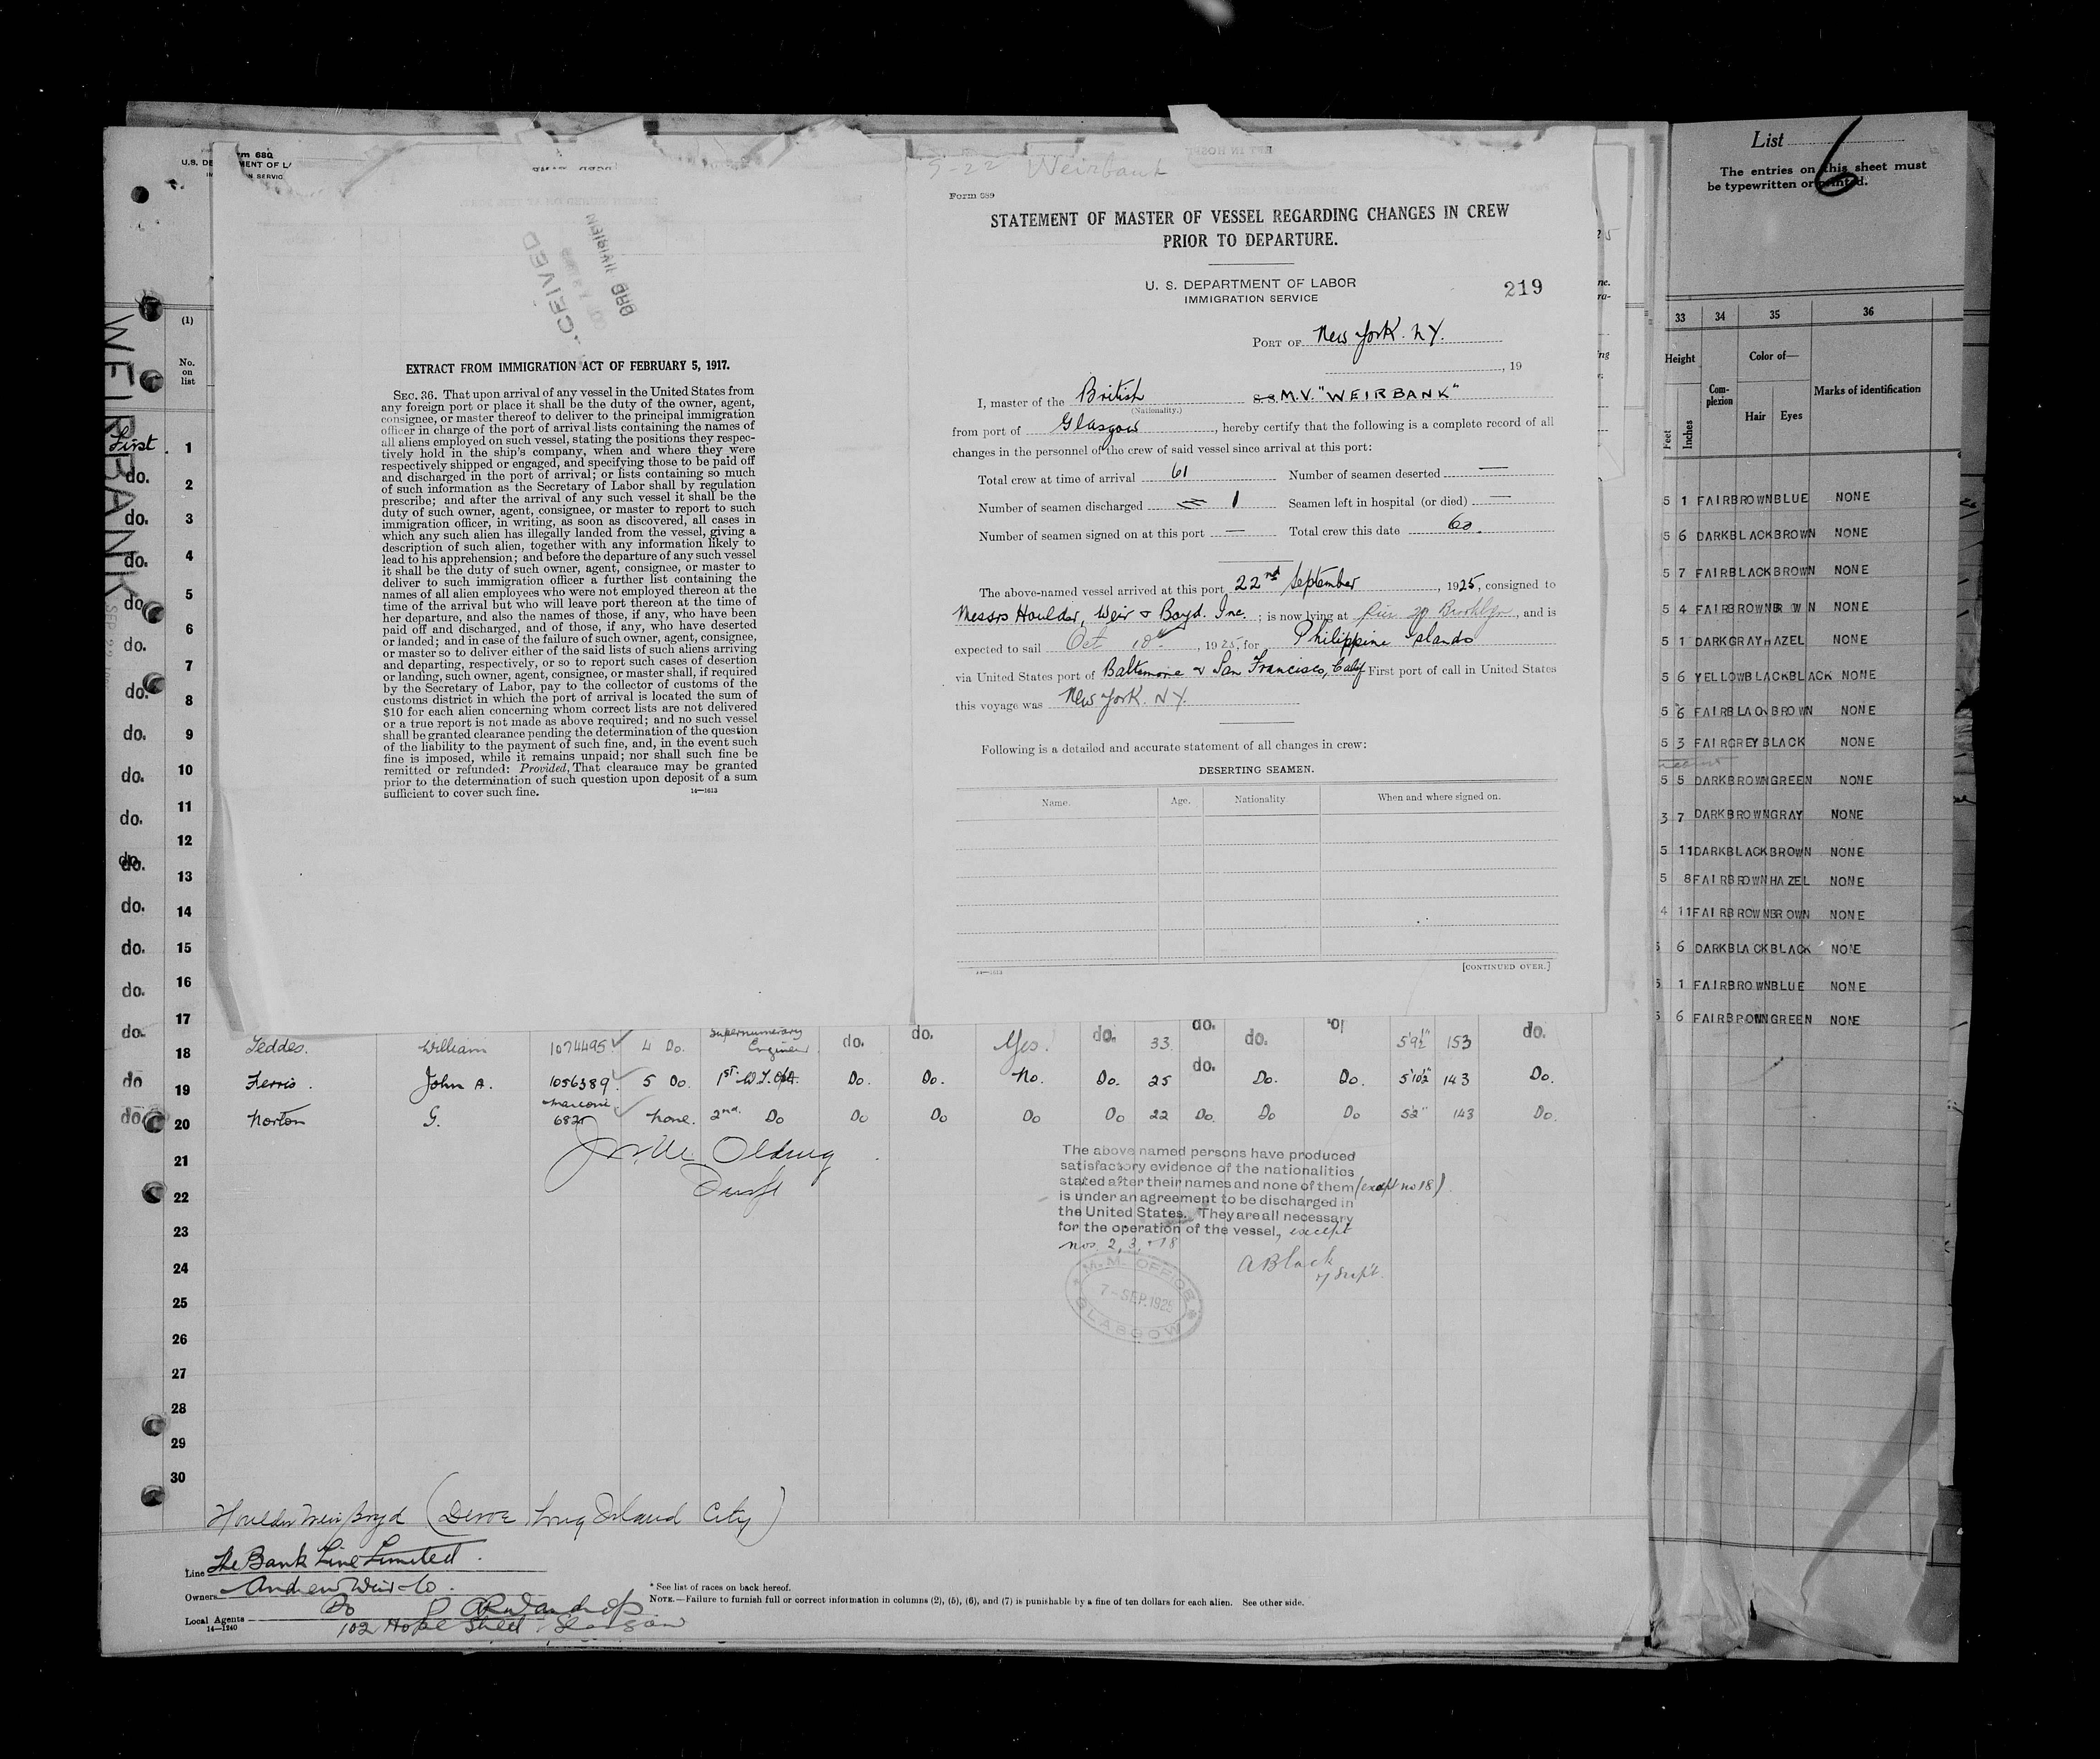 Form 689
STATEMENT OF MASTER OF VESSEL REGARDING CHANGES IN CREW
PRIOR TO DEPARTURE.
U. S. DEPARTMENT OF LABOR
IMMIGRATION SERVICE
219
PORT OF New York. N.Y.
, 19
I, master of the British S.S. M.V. "WEIRBANK"
(Nationality.)
from port of Glasgow, hereby certify that the following is a complete record of all
changes in the personnel of the crew of said vessel since arrival at this port:
Total crew at time of arrival 61 Number of seamen deserted —
Number of seamen discharged 1 Seamen left in hospital (or died) —
Number of seamen signed on at this port — Total crew this date 60.
The above-named vessel arrived at this port 22nd September, 1925, consigned to
Messrs Houlder, Weir & Boyd. Inc.; is now lying at Pier Brooklyn, and is
expected to sail Oct 10th, 1925, for Philippine Islands
via United States port of Baltimore & San Francisco, Calif First port of call in United States
this voyage was New York. N.Y.
Following is a detailed and accurate statement of all changes in crew:
DESERTING SEAMEN.
Name. Age. Nationality When and where signed on.
14—1613
[CONTINUED OVER.]
Weirbank
EXTRACT FROM IMMIGRATION ACT OF FEBRUARY 5, 1917.
SEC. 36. That upon arrival of any vessel in the United States from
any foreign port or place it shall be the duty of the owner, agent,
consignee, or master thereof to deliver to the principal immigration
officer in charge of the port of arrival lists containing the names of
all aliens employed on such vessel, stating the positions they respec-
tively hold in the ship's company, when and where they were
respectively shipped or engaged, and specifying those to be paid off
and discharged in the port of arrival; or lists containing so much
of such information as the Secretary of Labor shall by regulation
prescribe; and after the arrival of any such vessel it shall be the
duty of such owner, agent, consignee, or master to report to such
immigration officer, in writing, as soon as discovered, all cases in
which any such alien has illegally landed from the vessel, giving a
description of such alien, together with any information likely to
lead to his apprehension; and before the departure of any such vessel
it shall be the duty of such owner, agent, consignee, or master to
deliver to such immigration officer a further list containing the
names of all alien employees who were not employed thereon at the
time of the arrival but who will leave port thereon at the time of
her departure, and also the names of those, if any, who have been
paid off and discharged, and of those, if any, who have deserted
or landed; and in case of the failure of such owner, agent, consignee,
or master so to deliver either of the said lists of such aliens arriving
and departing, respectively, or so to report such cases of desertion
or landing, such owner, agent, consignee, or master shall, if required
by the Secretary of Labor, pay to the collector of customs of the
customs district in which the port of arrival is located the sum of
$10 for each alien concerning whom correct lists are not delivered
or a true report is not made as above required; and no such vessel
shall be granted clearance pending the determination of the question
of the liability to the payment of such fine, and, in the event such
fine is imposed, while it remains unpaid; nor shall such fine be
remitted or refunded: Provided, That clearance may be granted
prior to the determination of such question upon deposit of a sum
sufficient to cover such fine.
14—1613
WEIRBANK
(1)
No.
on
list
First 1
do. 2
do. 3
do. 4
do. 5
do. 6
do. 7
do. 8
do. 9
do. 10
do. 11
do. 12
do. 13
do. 14
do. 15
do. 16
do. 17
18 Geddes. William 1074495 4 Do. Supernumerary Engineer. do. do. Yes. do. 33 do. do. 5'9½" 153 do.
do 19 Ferris. John A. 1056389 5 Do. 1st W.T. Opr. Do. Do. No. Do. 25 do. Do. Do. 5'10½" 143 Do.
do 20 Norton G. Marconi 682 None. 2nd. Do Do Do Do Do 22 Do. Do Do 5'2" 143 Do.
21
22
23
24
25
26
27
28
29
30
The above named persons have produced
satisfactory evidence of the nationalities
stated after their names and none of them (except no 18)
is under an agreement to be discharged in
the United States. They are all necessary
for the operation of the vessel, except
nos. 2, 3, & 18
A Black
Supt.
M.M. OFFICE
7-SEP.1925
GLASGOW
Houlder Weir Boyd (Devoe Long Island City)
Line The Bank Line Limited.
Owners Andrew Weir & Co.
Local Agents Do
102 Hope Street, Glasgow
14—1240
* See list of races on back hereof.
NOTE.—Failure to furnish full or correct information in columns (2), (5), (6), and (7) is punishable by a fine of ten dollars for each alien. See other side.
List 6
The entries on this sheet must
be typewritten or printed.
33 34 35 36
Height Complexion Color of— Marks of identification
Feet Inches Hair Eyes
5 1 FAIR BROWN BLUE NONE
5 6 DARK BLACK BROWN NONE
5 7 FAIR BLACK BROWN NONE
5 4 FAIR BROWN BROWN NONE
5 1 DARK GRAY HAZEL NONE
5 6 YELLOW BLACK BLACK NONE
5 6 FAIR BLACK BROWN NONE
5 3 FAIR GREY BLACK NONE
5 5 DARK BROWN GREEN NONE
3 7 DARK BROWN GRAY NONE
5 11 DARK BLACK BROWN NONE
5 8 FAIR BROWN HAZEL NONE
4 11 FAIR BROWN BROWN NONE
5 6 DARK BLACK BLACK NONE
5 1 FAIR BROWN BLUE NONE
5 6 FAIR BROWN GREEN NONE